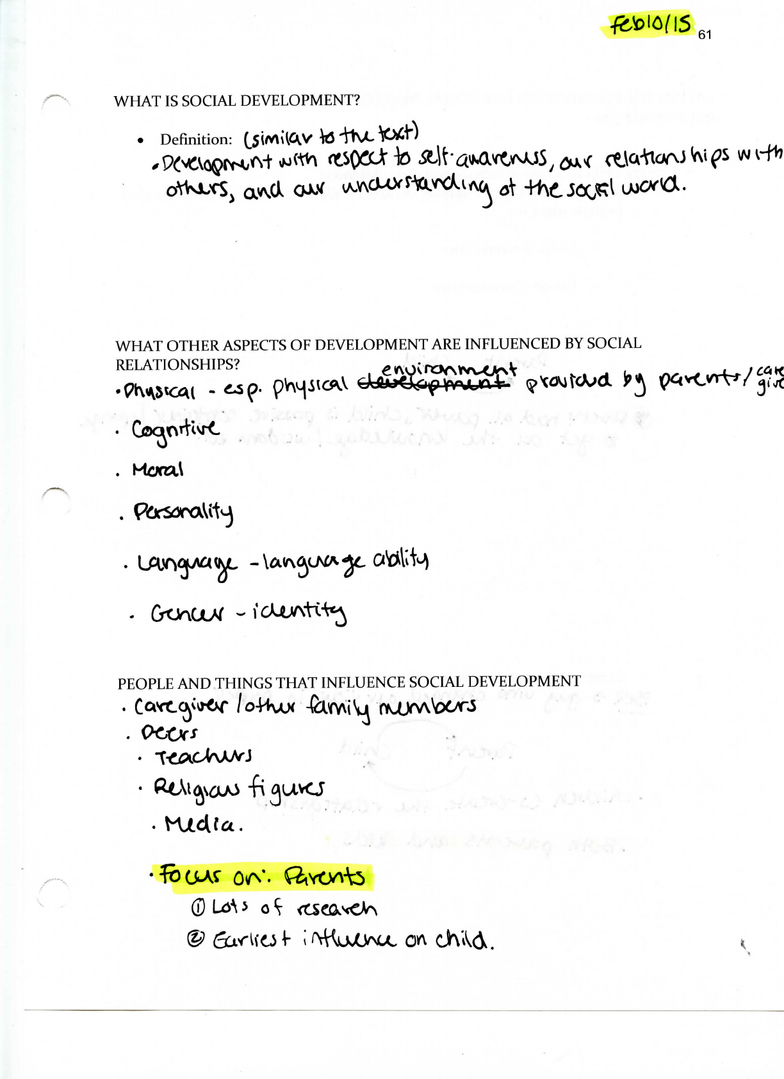 Feb10/15
61
WHAT IS SOCIAL DEVELOPMENT?
• Definition: (similar to the text)
• Development with respect to self-awareness, our relationships with
others, and our understanding of the social world.
WHAT OTHER ASPECTS OF DEVELOPMENT ARE INFLUENCED BY SOCIAL
RELATIONSHIPS?
environment
• Physical - esp. physical development provided by parents/care
give
• Cognitive
• Moral
• Personality
• Language - language ability
• Gender - identity
PEOPLE AND THINGS THAT INFLUENCE SOCIAL DEVELOPMENT
• Caregiver/other family members
• Peers
• Teachers
• Religious figures
• Media.
• Focus on: Parents
① Lots of research
② Earliest influence on child.